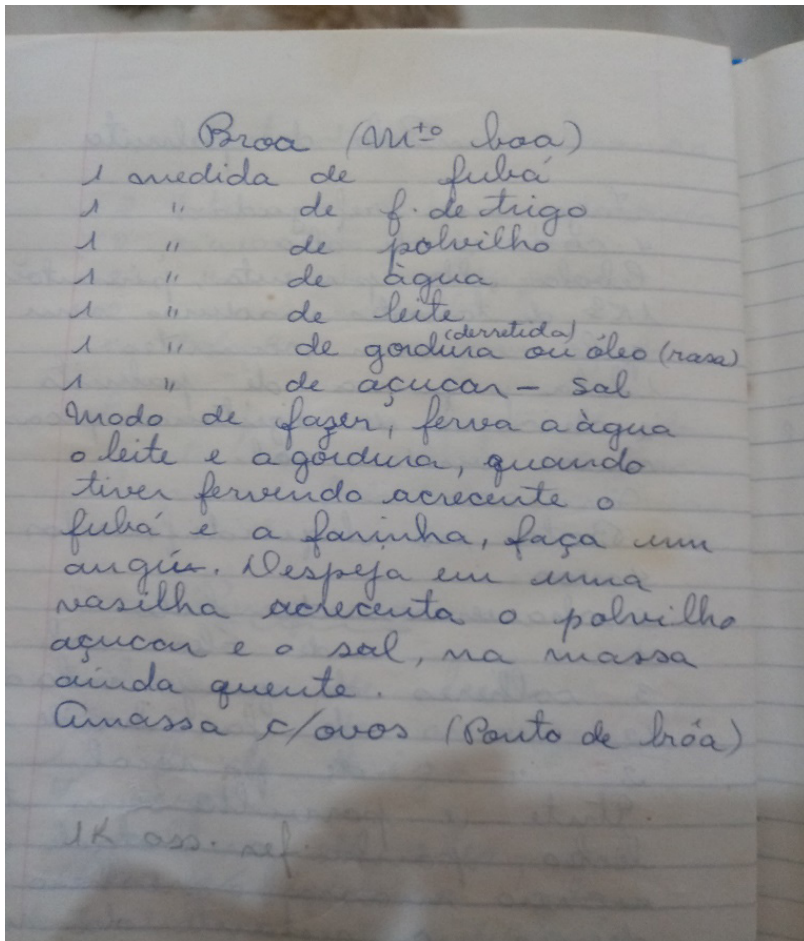 Broa (Mto boa)
1 medida de fubá
1 " de f. de trigo
1 " de polvilho
1 " de àgua
1 " de leite
1 " de gordura (derretida) ou óleo (rasa)
1 " de açucar - sal
Modo de fazer, ferva a àgua
o leite e a gordura, quando
tiver fervendo acrecente o
fubá e a farinha, faça um
angú. Despeja em uma
vasilha acrecenta o polvilho
açucar e o sal, na massa
ainda quente.
Amassa c/ovos (Ponto de bróa)
1K